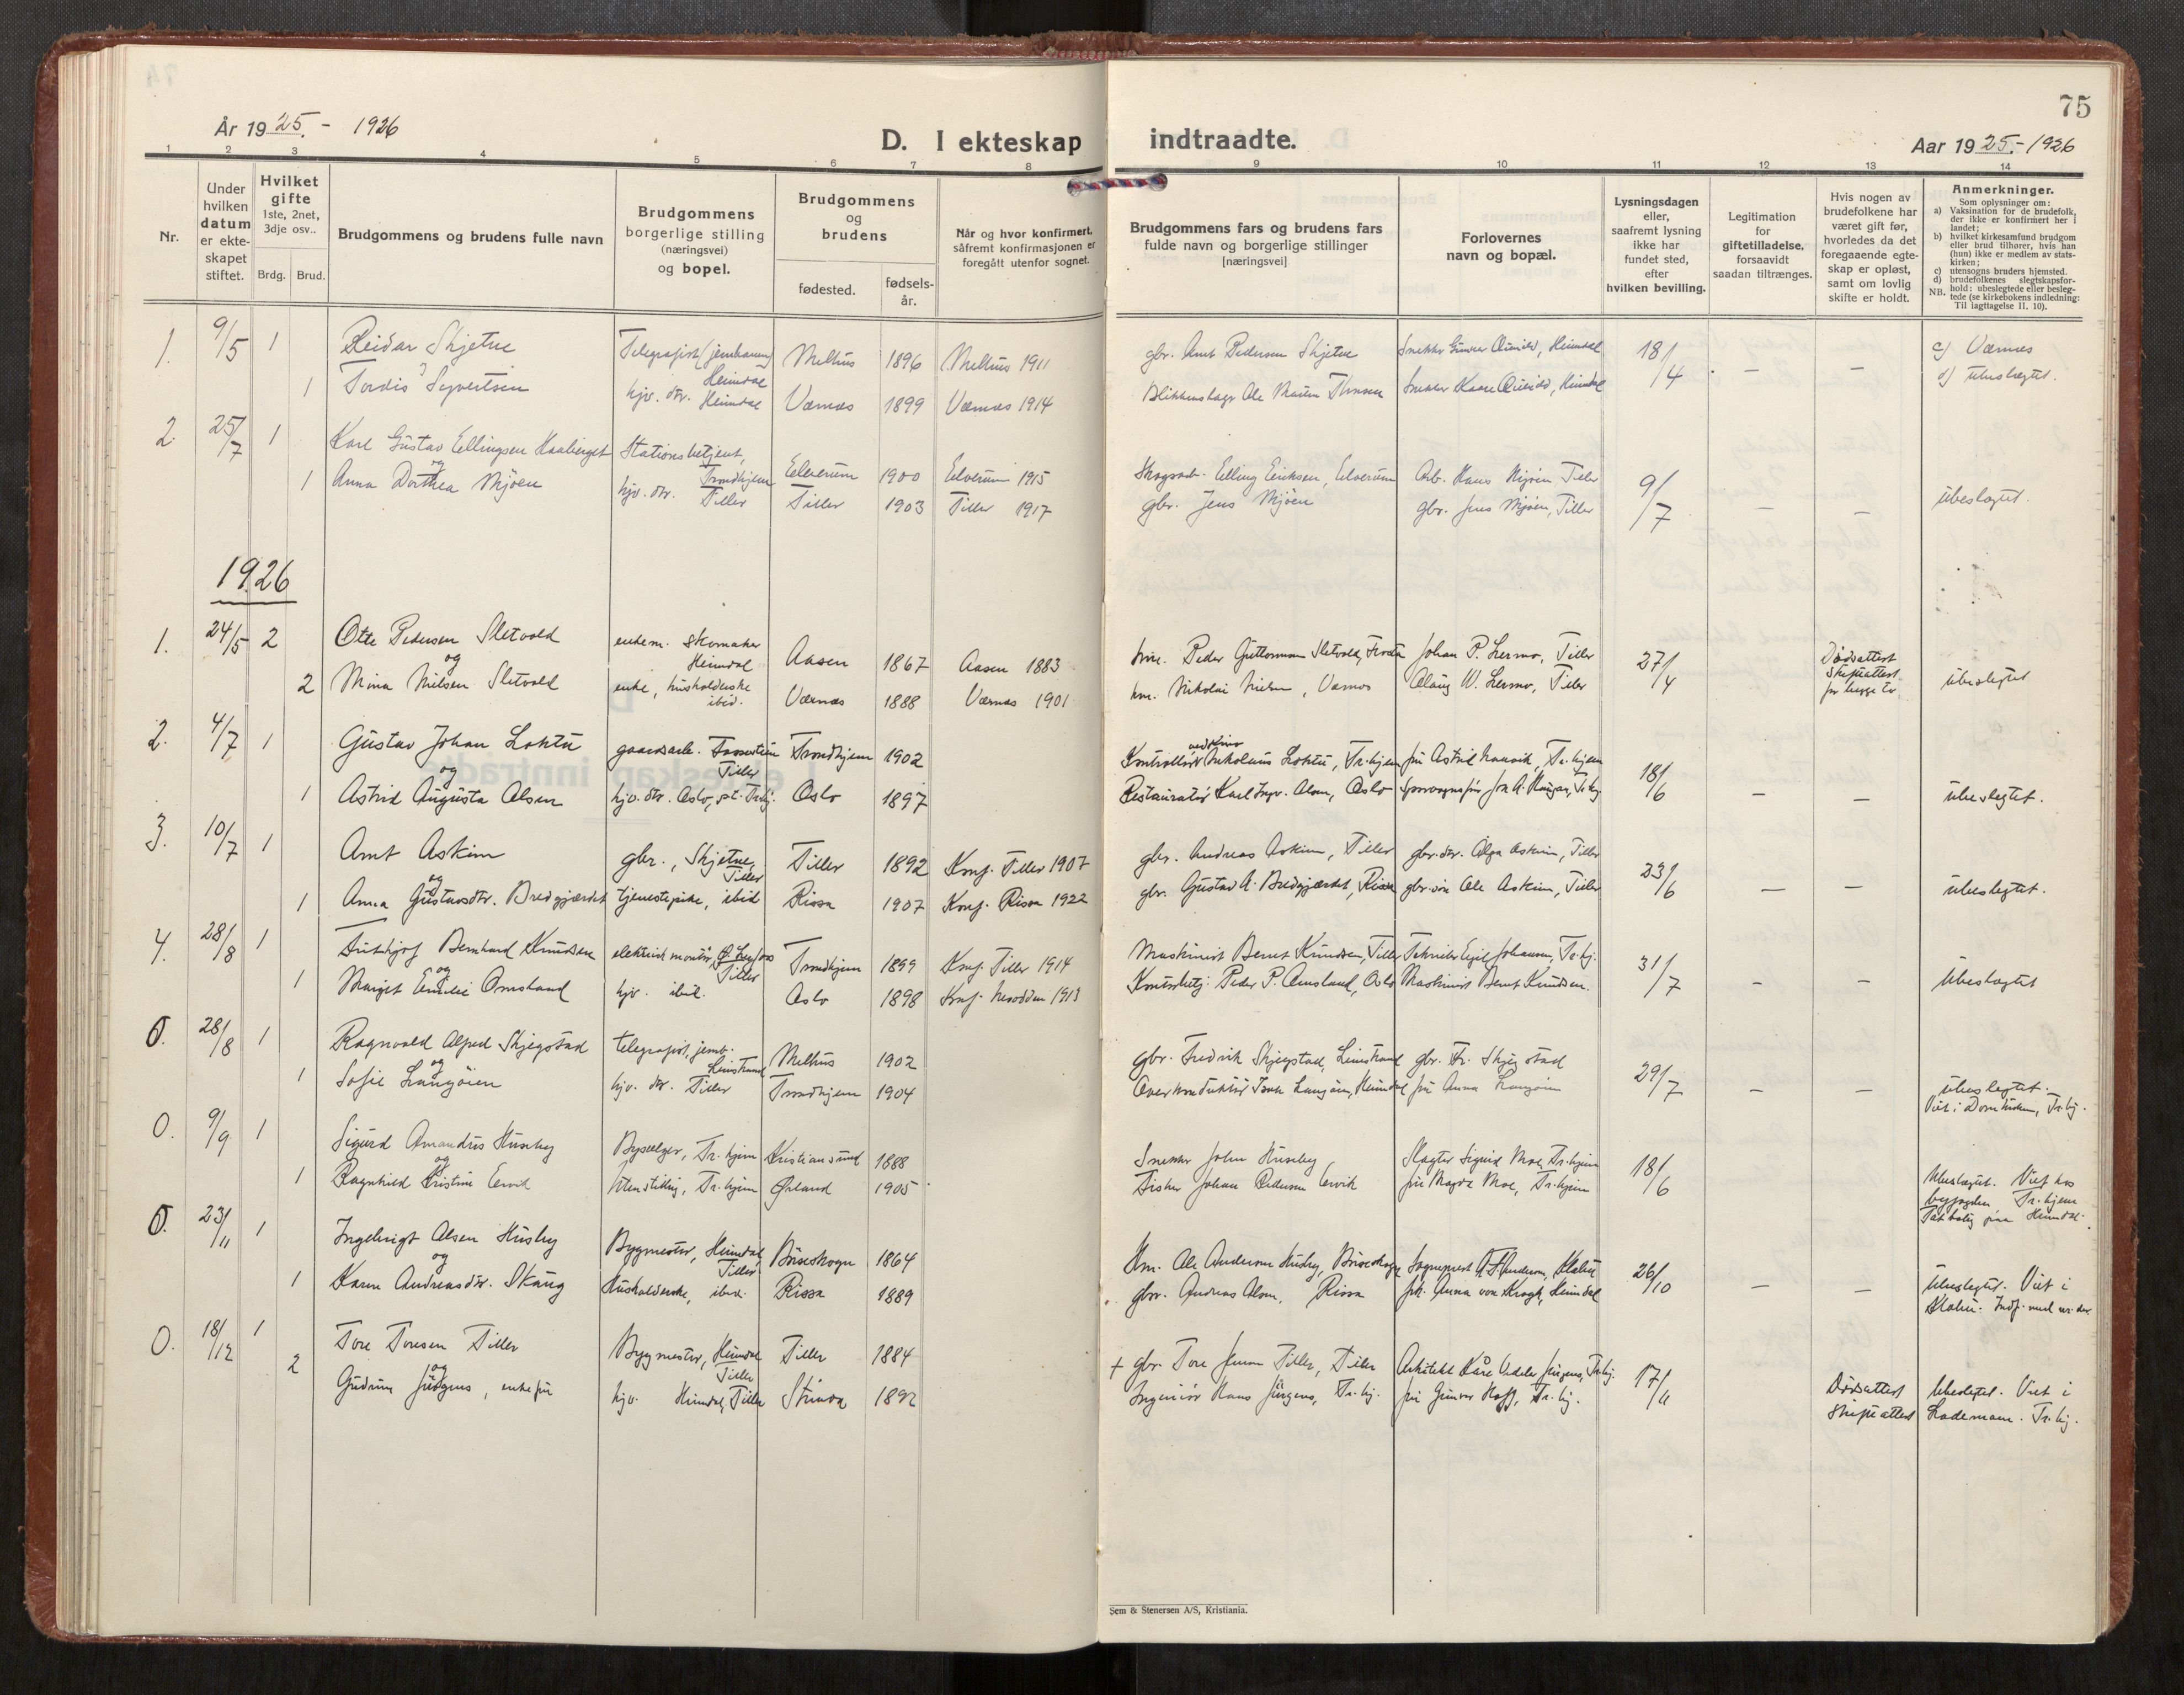 År 1925. - 1926
D. I ekteskap indtraadte.
75
Aar 1925.-1926
1 2 3 4 5 6 7 8 9 10 11 12 13 14
Nr.
Under hvilken datum er ekteskapet stiftet.
Hvilket gifte 1ste, 2net, 3dje osv..
Brdg. Brud.
Brudgommens og brudens fulle navn
Brudgommens borgerlige stilling (næringsvei) og bopel.
Brudgommens og brudens
fødested.
fødselsår.
Når og hvor konfirmert, såfremt konfirmasjonen er foregått utenfor sognet.
Brudgommens fars og brudens fars fulde navn og borgerlige stillinger [næringsvei]
Forlovernes navn og bopæl.
Lysningsdagen eller, saafremt lysning ikke har fundet sted, efter hvilken bevilling.
Legitimation for giftetilladelse, forsaavidt saadan tiltrænges.
Hvis nogen av brudefolkene har været gift før, hvorledes da det foregaaende egteskap er opløst, samt om lovlig skifte er holdt.
Anmerkninger.
Som oplysninger om:
a) Vaksination for de brudefolk, der ikke er konfirmert her i landet;
b) hvilket kirkesamfund brudgom eller brud tilhører, hvis han (hun) ikke er medlem av statskirken;
c) utensogns bruders hjemsted.
d) brudefolkenes slegtskapsforhold: ubeslegtede eller beslegtede (se kirkebokens indledning: Til iagttagelse II. 10).
NB.
1. 9/5 1 Reidar Skjetne Telegrafist (jernbanen) Heimdal Melhus 1896 Melhus 1911 gbr. Arnt Pedersen Skjetne Snekker Gunnar Heimdal 18/4 - - c) Værnes
1 Tordis Syvertsen hjv. dtr. Heimdal Værnes 1899 Værnes 1914 Blikkenslager Ole Martin Snekker Kaare Heimdal d) Ubeslægtet.
2. 25/7 1 Karl Gustav Ellingsen Haaberget Stationsbetjent, Trondhjem Elverum 1900 Elverum 1915 Skogsarb. Elling Eriksen, Elverum Arb. Hans Mjøen Tiller 9/7 - - Ubeslægtet.
og
1 Anna Dorthea Mjøen hjv. dtr. Tiller Tiller 1903 Tiller 1917 gbr. Jens Mjøen gbr. Jens Mjøen, Tiller
1926
1. 24/5 2 Otte Pedersen Sletvold enkem. skomaker Heimdal Aasen 1867 Aasen 1883 hm. Peder Guttormsen Sletvold, Frosta Johan P. Lermo, Tiller 27/4 Dødsattest Skifteattest for begge to ubeslegtet
og
2 Mina Nielsen Sletvold enke, husholderske ibid. Værnes 1888 Værnes 1901 hm. Nikolai Nielsen, Værnes Olaug W. Lermo, Tiller
2. 4/7 1 Gustav Johan Lohtu gaardsarb. Tiller Trondhjem 1902 Kontrollør ved Kino Nikolaus Lohtu, Tr.hjem fru Astrid Tr.hjem 18/6 - - ubeslegtet.
og
1 Astrid Augusta Olsen hjv. dtr. Oslo, pt. Trhj. Oslo 1897 Restauratør Karl Ingv. Olsen, Oslo Jon A. Haugan, Tr.hj.
3. 10/7 1 Arnt Askim gbr., Skjetne, Tiller Tiller 1892 Konf. Tiller 1907 gbr. Andreas Askim, Tiller gbr. dtr. Olga Askim, Tiller 23/6 - - ubeslegtet.
og
1 Anna Gustavsdtr. Bredgjærdet tjenestepike, ibid Rissa 1907 Konf. Rissa 1922 gbr. Gustav A. Bredgjærdet, Rissa gbr. søn Ole Askim, Tiller
4. 28/8 1 Fridthjof Bernhard Knudsen elektrisk montør, Tiller Trondhjem 1899 Konf. Tiller 1914 Maskinist Bernt Knudsen, Tiller Tekniker Egil Johansen, Tr.hj. 31/7 - - Ubeslægtet
og
1 Margit Emilie Omsland hjv. ibid. Oslo 1898 Konf. Nesodden 1913 Peder P. Omsland, Oslo Maskinist Bernt Knudsen.
0. 28/8 1 Ragnvald Alfred Skjegstad telegrafist, jernb. Leinstrand Melhus 1902 gbr. Fredrik Skjegstad, Leinstrand gbr. Fr. Skjegstad 29/7 - - ubeslegtet.
og
1 Sofie Langøien hjv. dtr. Tiller Trondhjem 1904 Overkonduktør Isak Langøien, Heimdal fru Anna Langøien Viet i Domkirken, Tr.hj.
0. 9/9 1 Sigurd Amandus Huseby Byselger, Tr.hjem Kristiansund 1888 Snekker John Huseby Slagter Sigurd Moe, Tr.hjem 18/6 Ubeslægtet. Viet hos
og
1 Ragnhild Kristine Ervik Uten stilling, Tr.hjem Ørland 1905 Fisker Johan Pedersen Ervik fru Magda Moe, Tr.hjem byfogden Tr.hjem
Tat bolig paa Heimdal.
0. 23/11 1 Ingebrigt Olsen Husby Bygmester, Heimdal, Tiller Børseskogn 1864 Hm. Ole Andersen Husby, Børseskogn Sogneprest Andersen, Klæbu 26/10 - - Ubeslegtet. Viet i
og
1 Karen Andreasdtr. Skaug Husholderske, ibid. Rissa 1889 gbr. Andreas Olsen, Rissa frk. Anna von Krogh, Heimdal Klæbu.
0. 18/12 1 Tore Toresen Tiller Bygmester, Heimdal Tiller Tiller 1884 + gbr. Tore Jensen Tiller, Tiller Arkitekt Kåre Jürgens, Tr.hj. 17/11 Dødsattest Ubeslegtet. Viet i
og
2 Gudrun Jürgens, enkefru hjv. Heimdal, Tiller Strinda 1892 Ingeniør Hans Jürgens, Tr.hj. fru Gunvor Hoff, Tr.hj. Skifteattest Lademoen. Tr.hj.
Sem & Stenersen A/S, Kristiania.